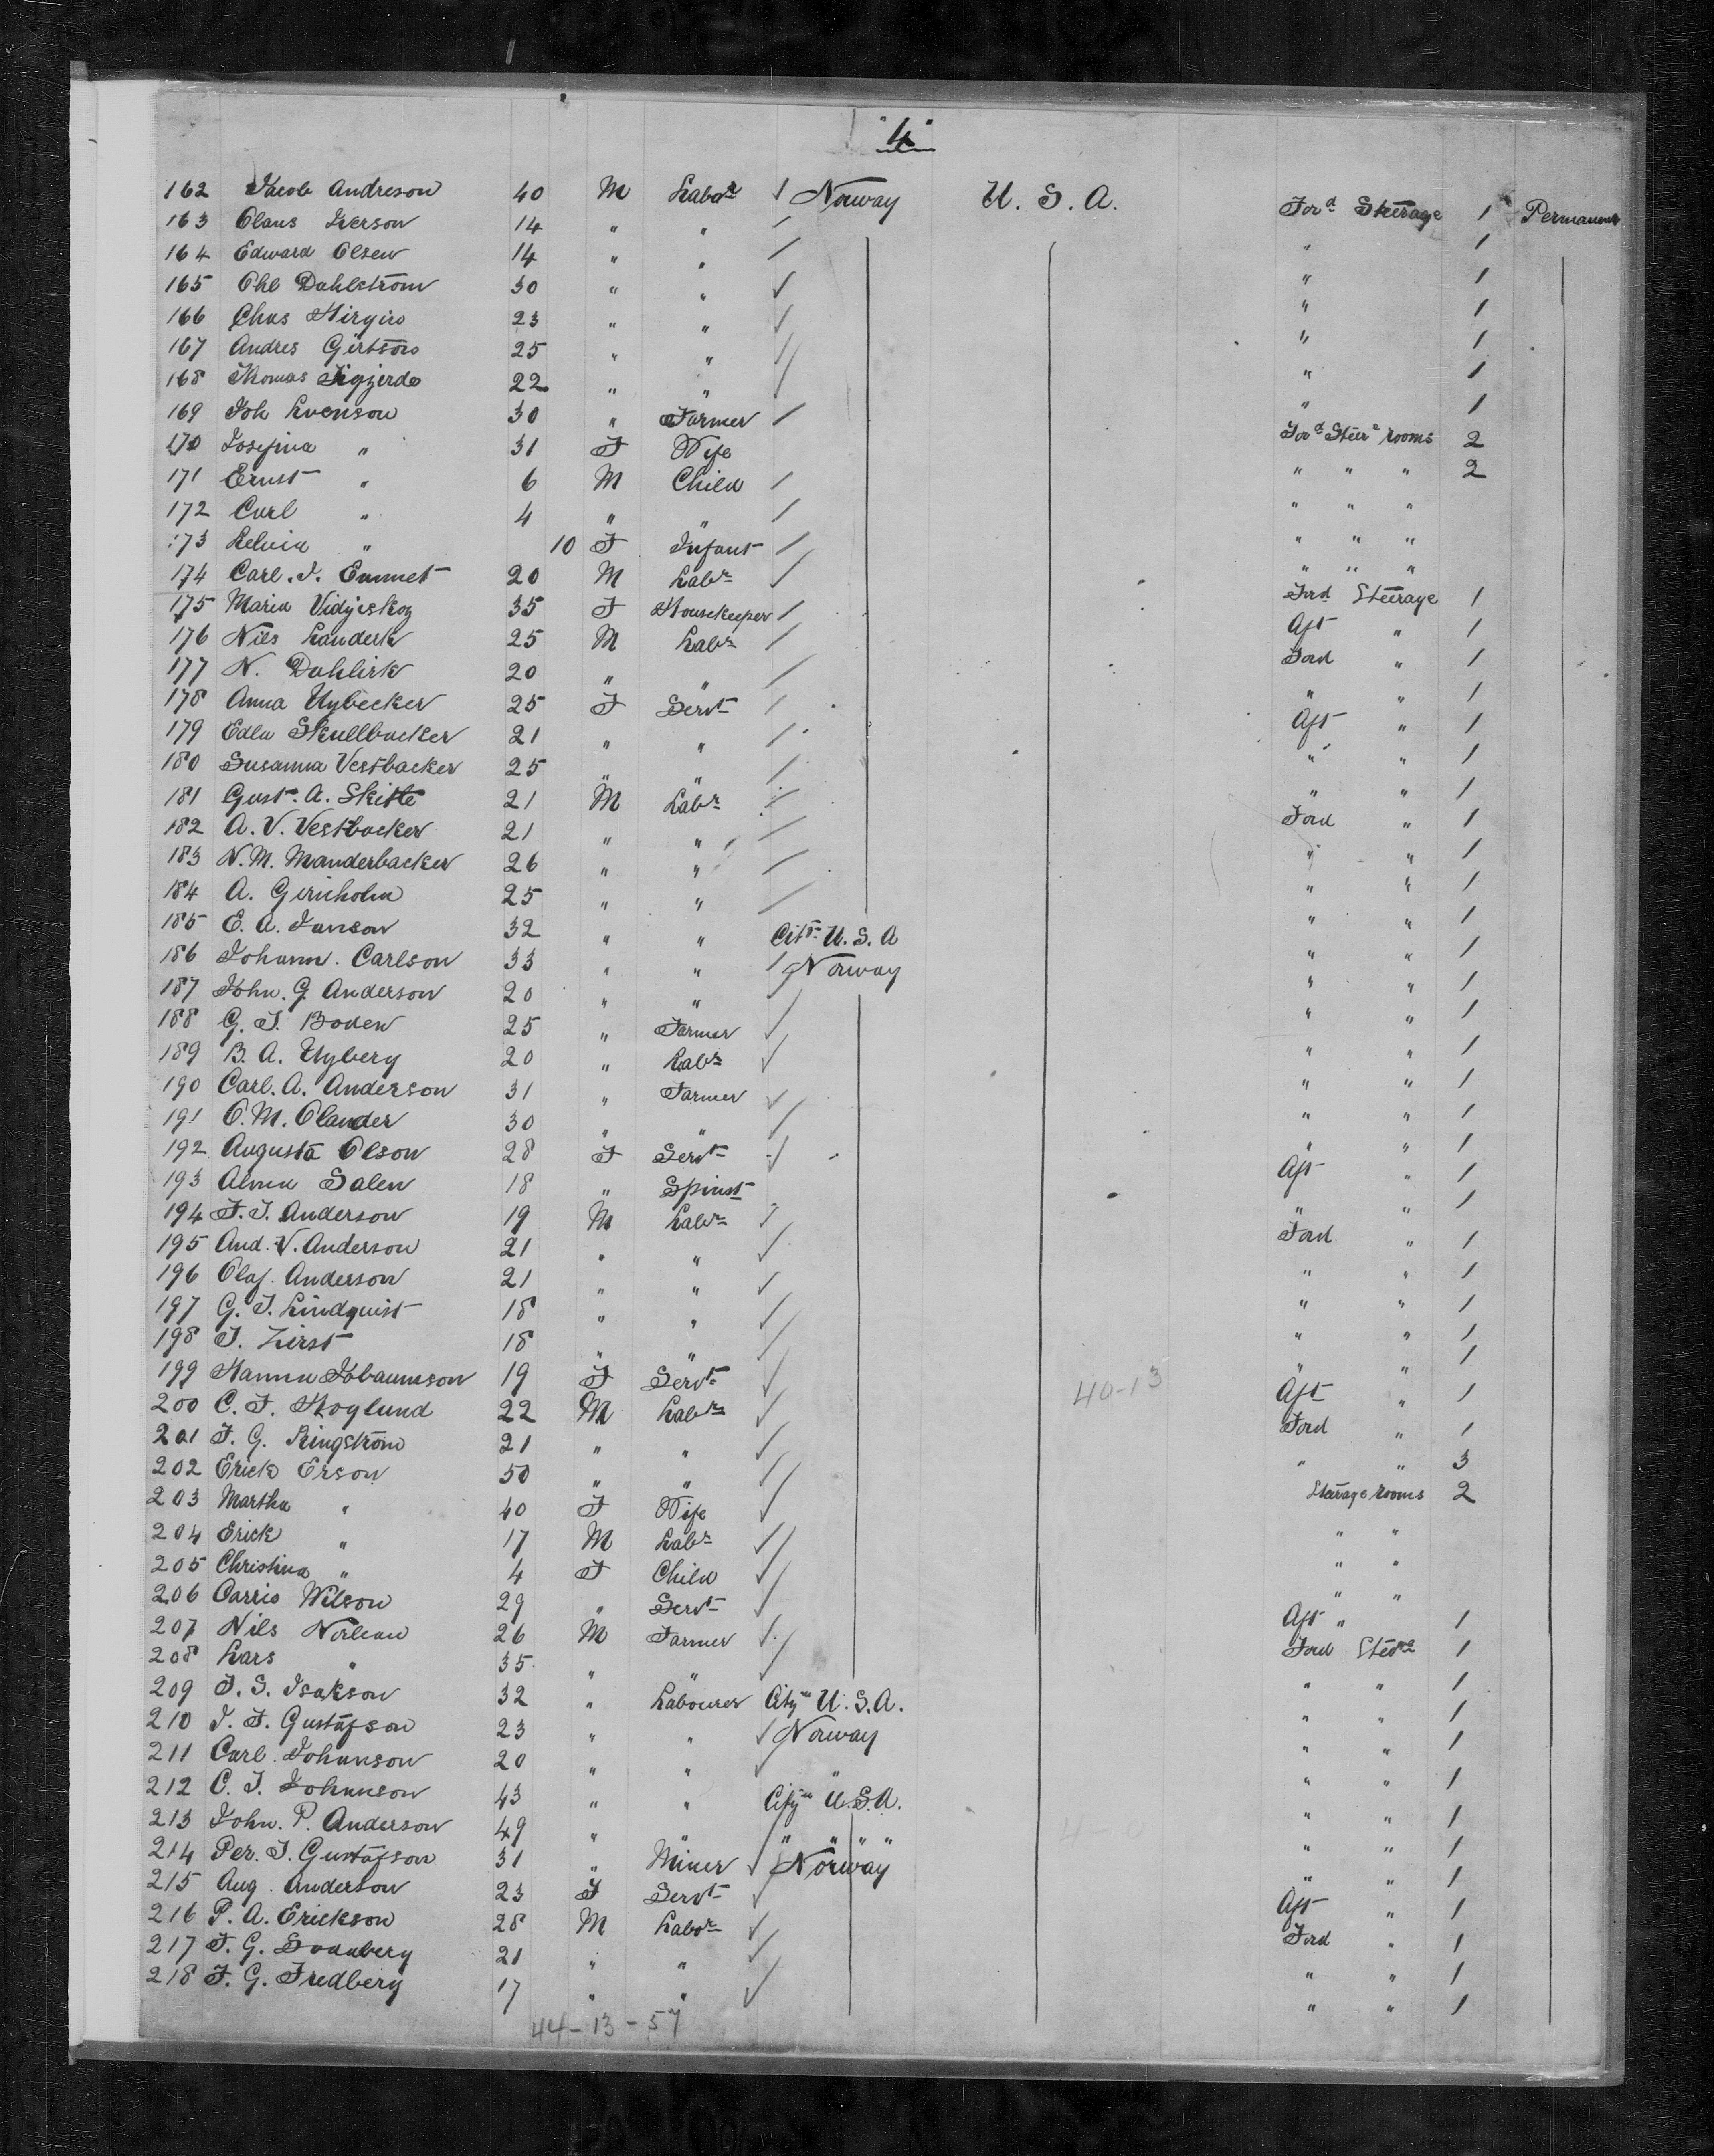 "4"
162 Jacob Andreson 40 M Labor 1 Norway U. S. A. Ford Steerage 1 Permanent
163 Olaus Iverson 14 " " / " 1
164 Edward Olsen 14 " " / " 1
165 Ohl Dahlström 30 " " ✓ " 1
166 Chas 23 " " ✓ " 1
167 Andres Girtson 25 " " / " 1
168 Thomas 22 " " / " 1
169 Joh Evenson 30 " Farmer / Ford Steer rooms 2
170 Josefina " 31 F Wife " " " 2
171 Ernst " 6 M Child / " " "
172 Carl " 4 " " / " " "
173 " 10 F Infant / " " "
174 Carl. J. Emmet 20 M Labr / Ford Steerage 1
175 Maria 35 F Housekeeper / Aft " 1
176 Nils Landerk 25 M Labr / Ford " 1
177 N. Dahlirk 20 " " / " " 1
178 Anna Nybecker 25 F Servt / Aft " 1
179 Edla Skullbacker 21 " " / " " 1
180 Susanna Vestbacker 25 " " / " " 1
181 Gust. A. Skitte 21 M Labr / Ford " 1
182 A. V. Vestbacker 21 " " / " " 1
183 N. M. Manderbacker 26 " " / " " 1
184 A. Gericholm 25 " " / " " 1
185 E. A. Janson 32 " " Citn U. S. A " " 1
186 Johann. Carlson 33 " " / Norway " " 1
187 John. G. Anderson 20 " " ✓ " " 1
188 G. J. Boden 25 " Farmer ✓ " " 1
189 B. A. Nyberg 20 " Labr ✓ " " 1
190 Carl. A. Anderson 31 " Farmer ✓ " " 1
191 O. M. Olander 30 " " ✓ " " 1
192 Augusta Olson 28 F Servt ✓ Aft " 1
193 Alma Salen 18 " Spinst " " 1
194 F. J. Anderson 19 M Labr ✓ Ford " 1
195 And. V. Anderson 21 " " ✓ " " 1
196 Olaf. Anderson 21 " " ✓ " " 1
197 G. J. Lindquist 18 " " / " " 1
198 J. 18 " " / " " 1
199 Hanna Johannson 19 F Servt ✓ 40-13 Aft " 1
200 C. F. Hoglund 22 M Labr ✓ Ford " 1
201 F. G. Ringström 21 " " ✓ " " 3
202 Erick Erson 50 " " ✓ Steerage rooms 2
203 Martha " 40 F Wife ✓ " "
204 Erick " 17 M Labr ✓ " "
205 Christina " 4 F Child ✓ " "
206 Carrie Wilson 29 " Servt ✓ Aft " 1
207 Nils Norleau 26 M Farmer ✓ Ford Steer 1
208 Lars " 35 " " ✓ " " 1
209 J. S. Isakson 32 " Labourer Citzn U. S. A. " " 1
210 J. F. Gustafson 23 " " ✓ Norway " " 1
211 Carl. Johanson 20 " " ✓ " " " 1
212 C. J. Johanson 43 " " Citzn U. S. A. " " 1
213 John. P. Anderson 49 " " " " " " " " 1
214 Per. J. Gustafson 31 " Miner ✓ Norway " " 1
215 Aug. Anderson 23 F Servt ✓ Aft " 1
216 P. A. Erickson 28 M Labor ✓ Ford " 1
217 F. G. Sodnberg 21 " " ✓ " " 1
218 F. G. Fredberg 17 " " ✓ " " 1
44-13-57